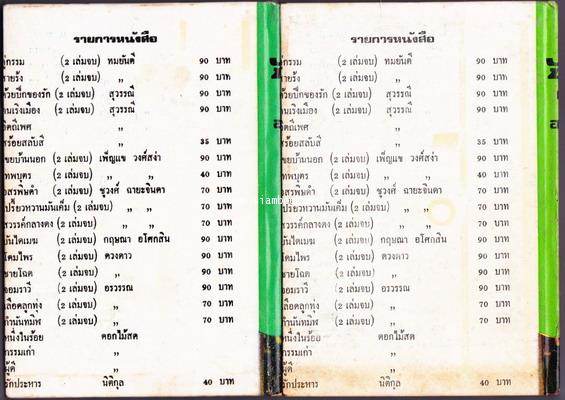 รายการหนังสือ
คู่กรรม (2 เล่มจบ) ทมยันตี 90 บาท
สายรุ้ง (2 เล่มจบ) ,, 90 บาท
ด้วยปีกของรัก (2 เล่มจบ) สุวรรณี 90 บาท
คนเริงเมือง (2 เล่มจบ) สุวรรณี 90 บาท
,,
สร้อยสลับสี ,, 35 บาท
เขยบ้านนอก (2 เล่มจบ) เพ็ญแข วงศ์สง่า 90 บาท
เทพบุตร (2 เล่มจบ) ,, ,, 40 บาท
อสรพิษดำ (2 เล่มจบ) ชูวงศ์ ฉายะจินดา 70 บาท
เปรี้ยวหวานมันเค็ม (2 เล่มจบ) ,, ,, 70 บาท
สวรรค์กลางดง (2 เล่มจบ) ,, ,, 70 บาท
บันไดเมฆ (2 เล่มจบ) กฤษณา อโศกสิน 90 บาท
โดมไพร (2 เล่มจบ) ดวงดาว 90 บาท
ชายโฉด (2 เล่มจบ) ,, 90 บาท
จอมราวี (2 เล่มจบ) อรวรรณ 90 บาท
เลือดลูกทุ่ง (2 เล่มจบ) ,, 70 บาท
กำนันทมิฬ (2 เล่มจบ) ,, 70 บาท
หนึ่งในร้อย ดอกไม้สด
กรรมเก่า ,,
ผู้ดี ,,
รักประหาร นิติกุล 40 บาท
รายการหนังสือ
คู่กรรม (2 เล่มจบ) ทมยันตี 90 บาท
สายรุ้ง (2 เล่มจบ) ,, 90 บาท
ด้วยปีกของรัก (2 เล่มจบ) สุวรรณี 90 บาท
คนเริงเมือง (2 เล่มจบ) สุวรรณี 90 บาท
,,
สร้อยสลับสี ,, 35 บาท
เขยบ้านนอก (2 เล่มจบ) เพ็ญแข วงศ์สง่า 90 บาท
เทพบุตร (2 เล่มจบ) ,, ,, 40 บาท
อสรพิษดำ (2 เล่มจบ) ชูวงศ์ ฉายะจินดา 70 บาท
เปรี้ยวหวานมันเค็ม (2 เล่มจบ) ,, ,, 70 บาท
สวรรค์กลางดง (2 เล่มจบ) ,, ,, 70 บาท
บันไดเมฆ (2 เล่มจบ) กฤษณา อโศกสิน 90 บาท
โดมไพร (2 เล่มจบ) ดวงดาว 90 บาท
ชายโฉด (2 เล่มจบ) ,, 90 บาท
จอมราวี (2 เล่มจบ) อรวรรณ 90 บาท
เลือดลูกทุ่ง (2 เล่มจบ) ,, 70 บาท
กำนันทมิฬ (2 เล่มจบ) ,, 70 บาท
หนึ่งในร้อย ดอกไม้สด
กรรมเก่า ,,
ผู้ดี ,,
รักประหาร นิติกุล 40 บาท